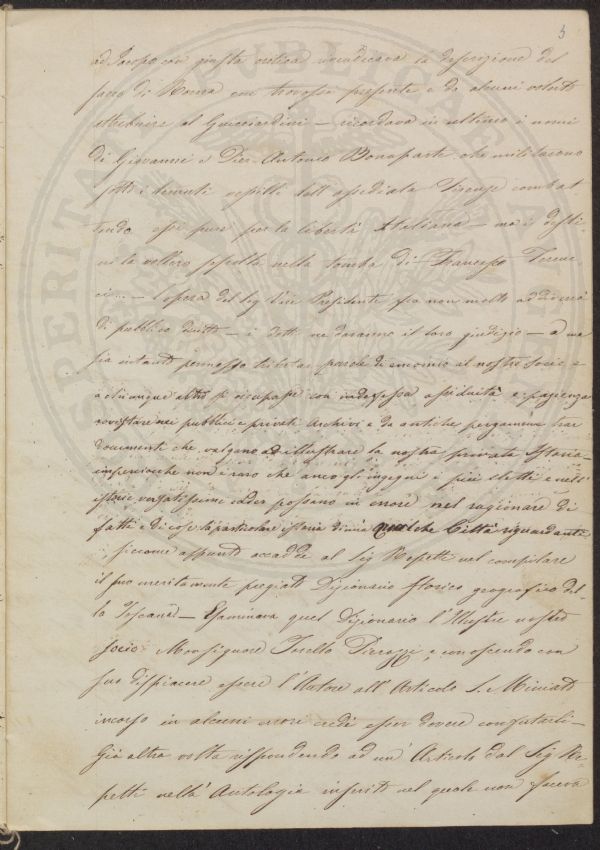 3
ad Jacopo con giusta critica rivendicava la descrizione del
sacco di Roma cui trovossi presente e da alcuni voluti
attribuire al Guicciardini — ricordava in ultimo i nomi
di Giovanni e Pier-Antonio Bonaparte che militarono
sotto i vessilli dell' assediata Firenze combat-
tendo essi pure per la libertà Italiana — ma
la vollero sepolta nella tomba di Francesco Ferruc-
ci... — l'opera del Sig. Vice Presidente fra non molto addiverrà
di pubblico diritto — i dotti ne daranno il loro giudizio — a me
sia intanto permesso tributar parole di encomio al nostro socio e
a chiunque altro si occupasse con indefessa assiduità e pazienza
rovistare nei pubblici e privati Archivi e da antiche pergamene trar
documenti che valgano ad illustrare la nostra privata Istoria —
imperciocchè non è raro che anco gl'ingegni i più eletti e nell'
istorie versatissimi cader possano in errore nel ragionare di
fatti e di cose la particolare istoria di una qualche Città riguardanti
siccome appunto accadde al Sig Repetti nel compilare
il suo meritamente pregiato Dizionario storico geografico del-
la Toscana — Esaminava quel Dizionario l'Illustre nostro
socio Monsignore Torello Pierazzi, e conoscendo con
suo dispiacere essere l'Autore all' Articolo S. Miniato
incorso in alcuni errori credè esser dovere confutarli —
Già altra volta rispondendo ad un' Articolo del Sig Re-
petti nell' Antologia inserito nel quale non faceva